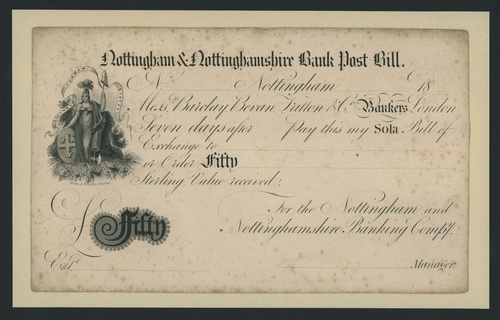 Nottingham & Nottinghamshire Bank Post Bill.
N Nottingham 18
Mess.rs Barclay Bevan, Tritton & Co. Bankers London
Seven days after Pay this my Sola Bill of
Exchange to
or Order Fifty
Sterling, Value received;
£ Fifty
For the Nottingham and
Nottinghamshire Banking Compy.
Ent.d Manager.